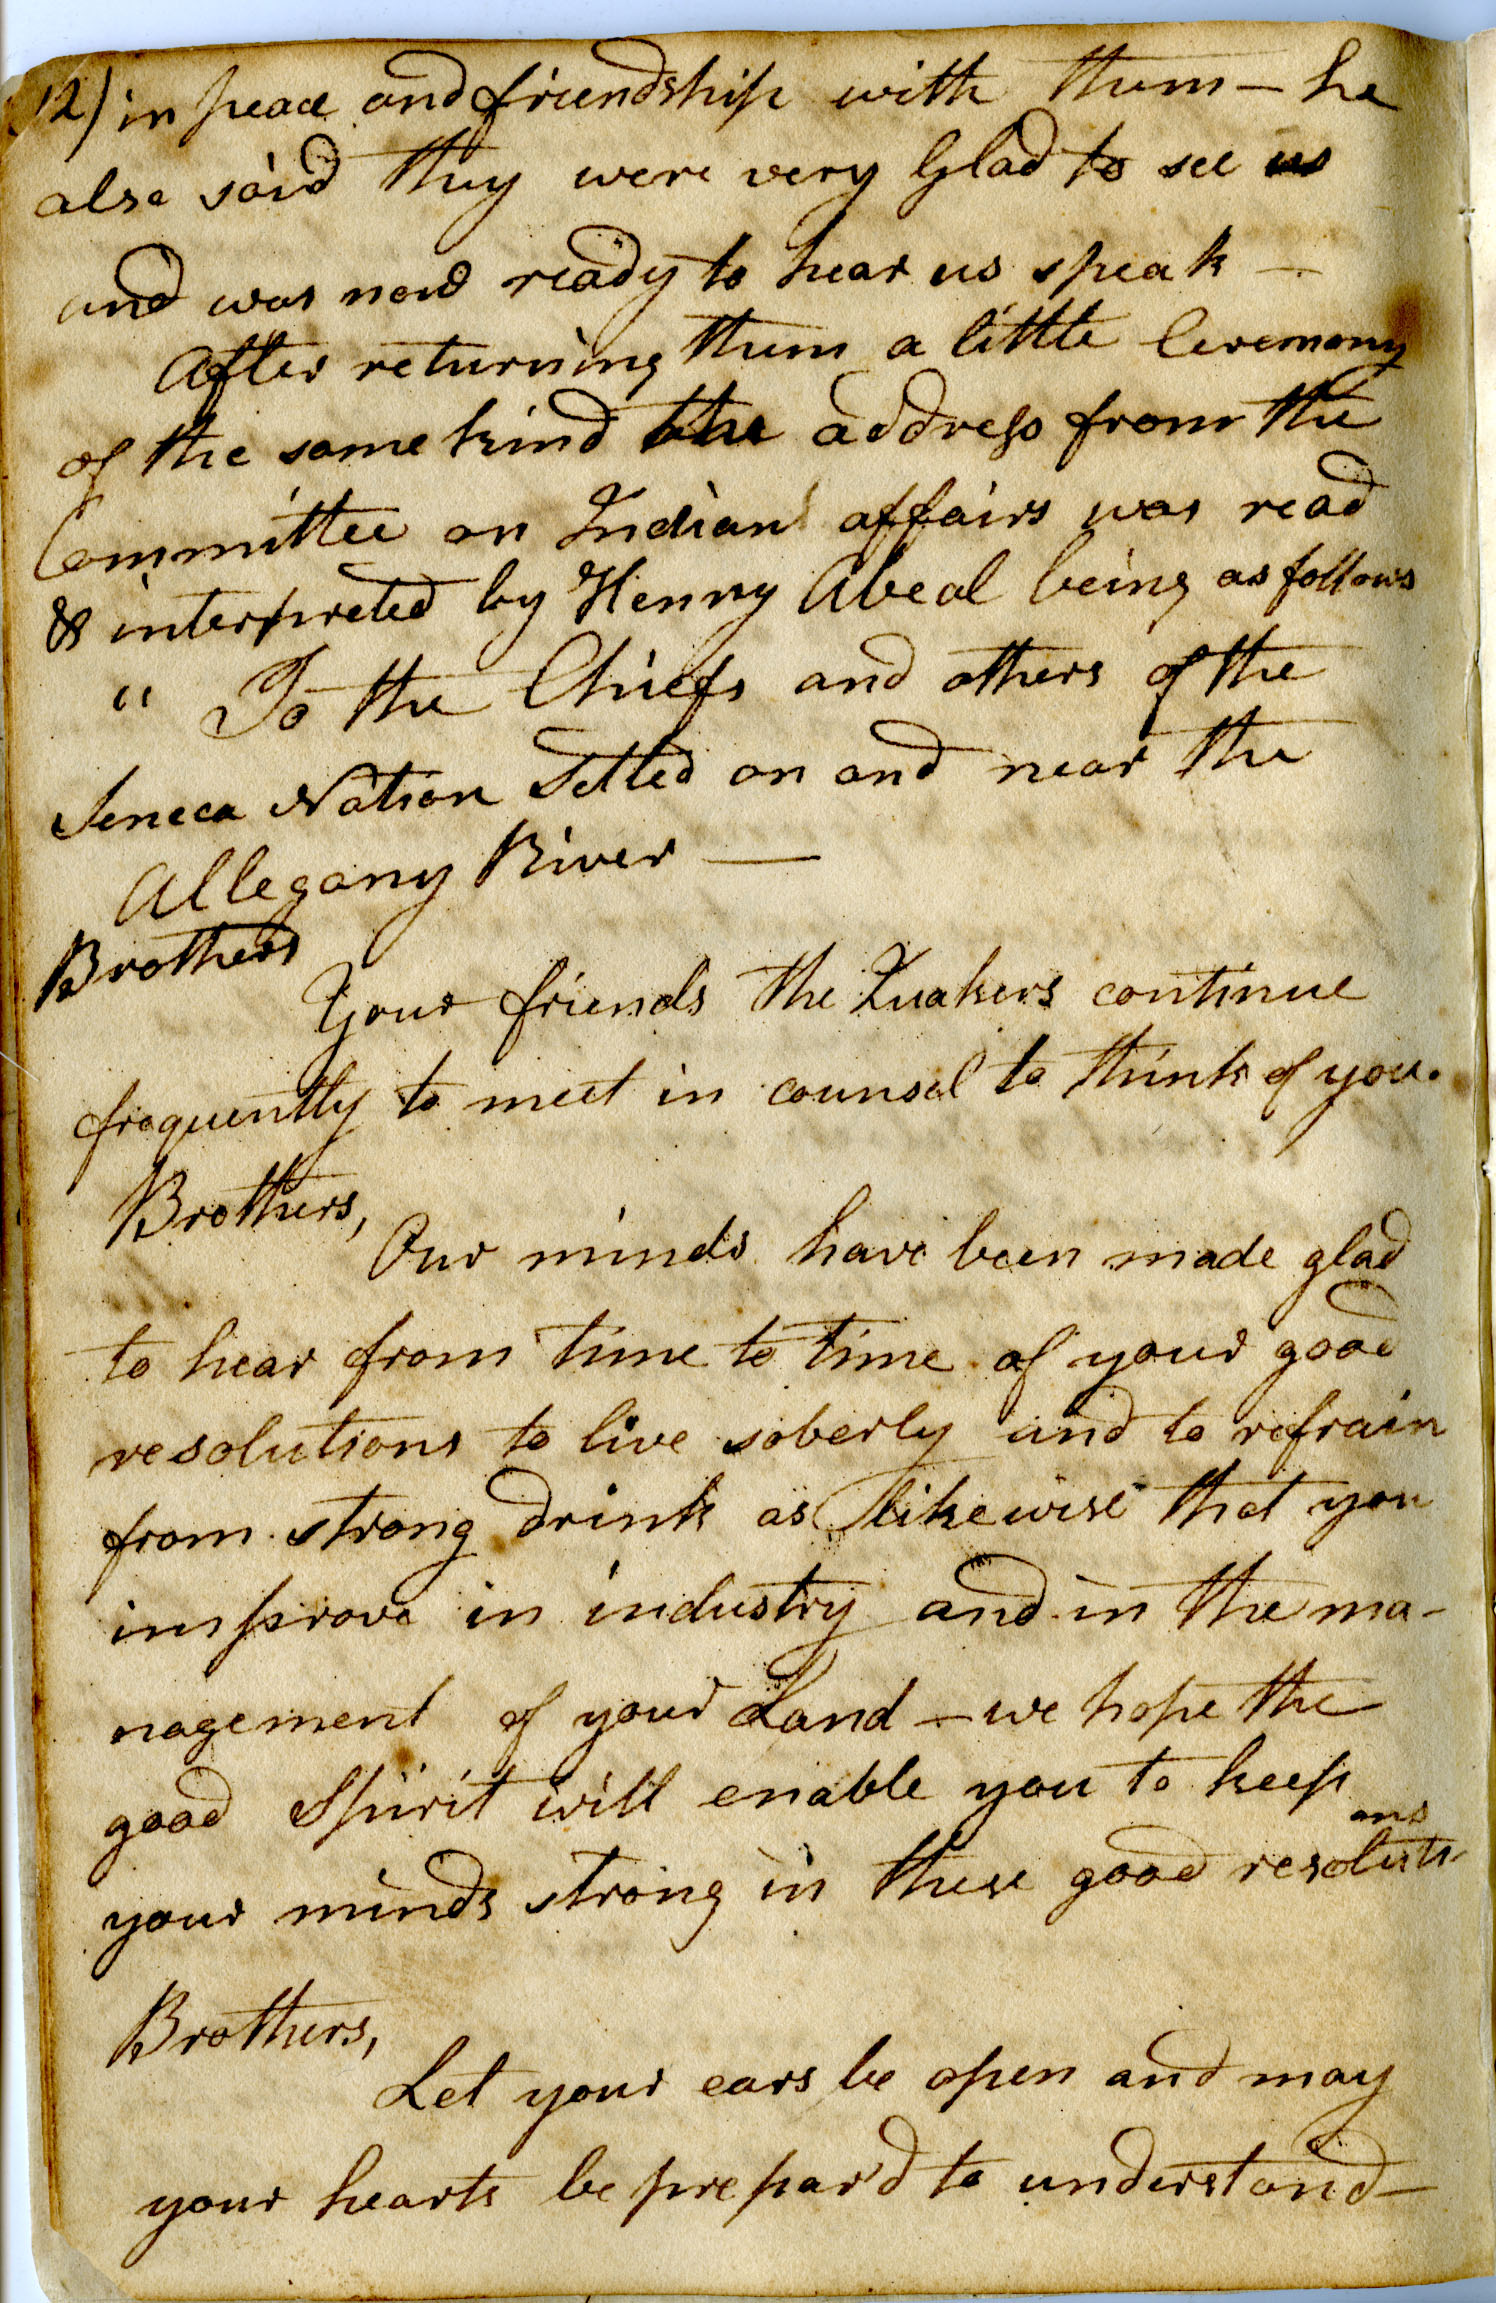 12) in peace and friendship with them – he
also said they were very Glad to see us
and was now ready to hear us speak –
After returning them a little Ceremony
of the same kind the address from the
Committee on Indian affairs was read
& interpreted by Henry Abeal being as follows
" To the Chiefs and others of the
Seneca Nation Setled on and near the
Allegany River —
Brothers
Your friends the Quakers continue
frequently to meet in counsel to think of you.
Brothers,
Our minds have been made glad
to hear from time to time of your good
resolutions to live soberly and to refrain
from strong drink as likewise that you
improve in industry and in the ma-
nagement of your Land – we hope the
good Spirit will enable you to keep
your minds strong in these good resoluti-
ons
Brothers,
Let your ears be open and may
your hearts be prepar'd to understand –